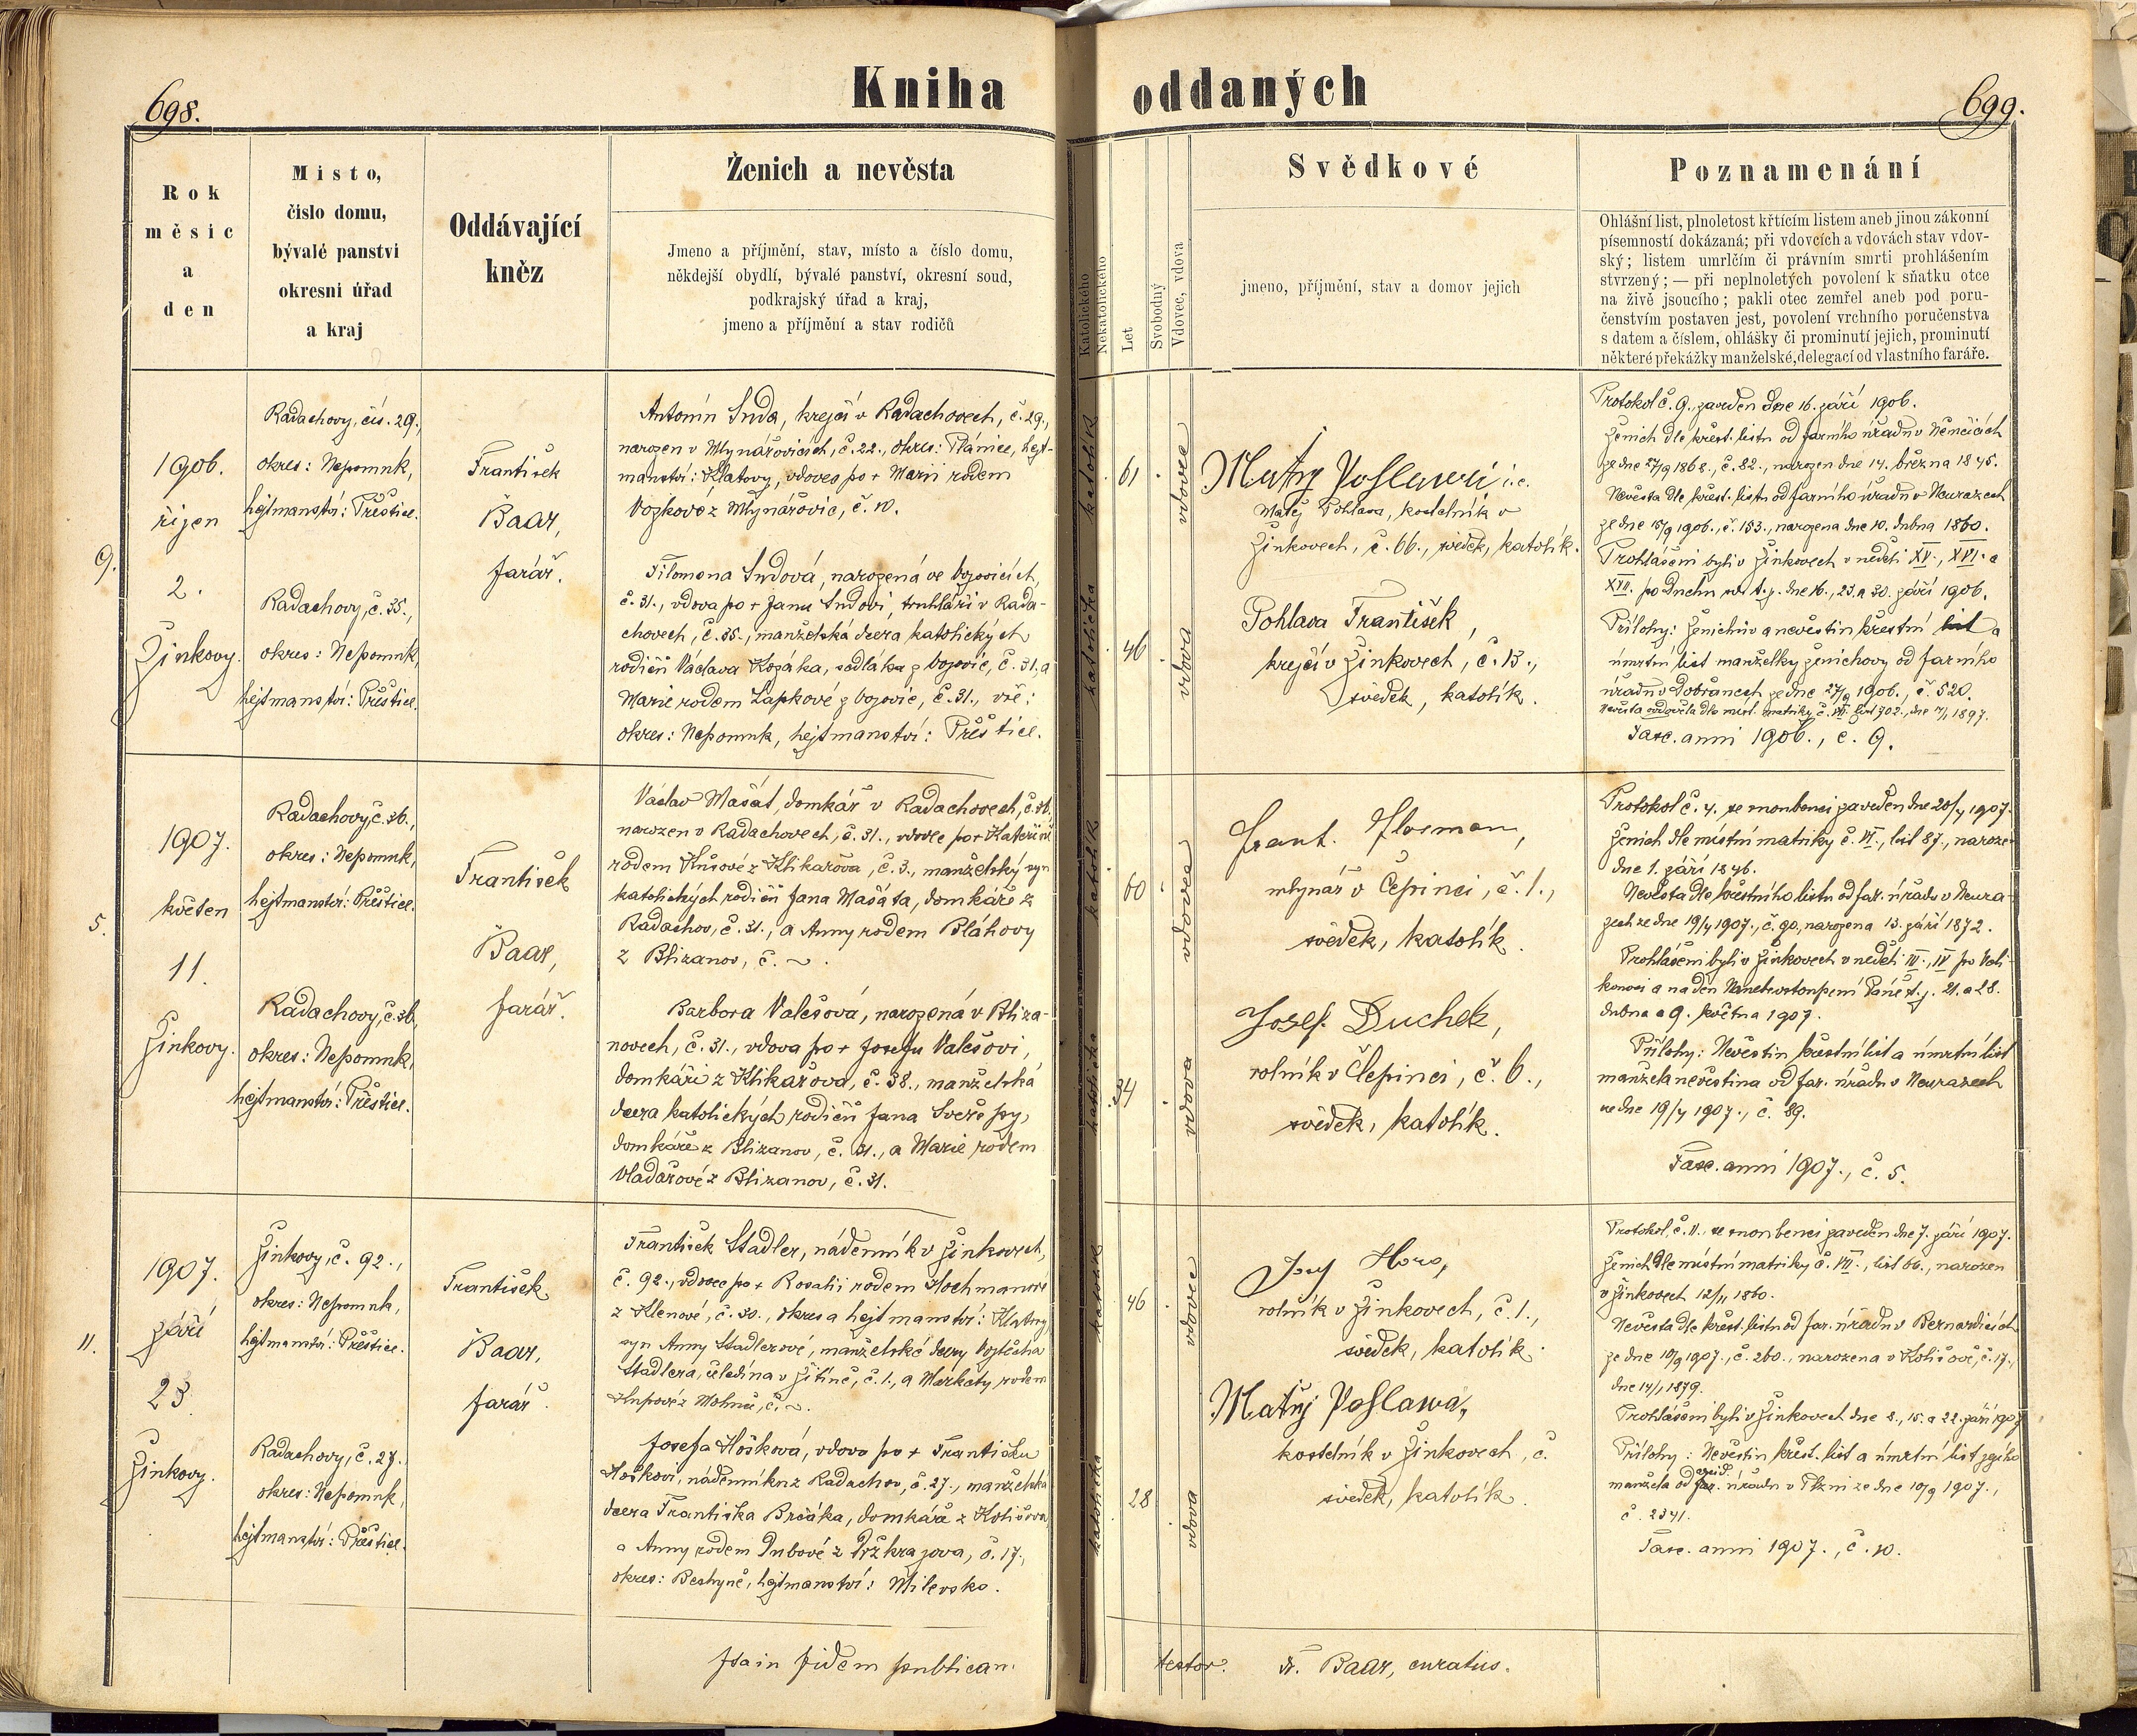 698.
Kniha oddaných
699.
Rok
měsíc
a
den
Místo,
číslo domu,
bývalé panství
okresní úřad
a kraj
Oddávající
kněz
Ženich a nevěsta
Jmeno a příjmění, stav, místo a číslo domu,
někdejší obydlí, bývalé panství, okresní soud,
podkrajský úřad a kraj,
jmeno a příjmění a stav rodičů
Katolického
Nekatolického
Let
Svobodný
Vdovec, vdova
Svědkové
jmeno, příjmění, stav a domov jejich
Poznamenání
Ohlášní list, plnoletost křtícím listem aneb jinou zákonní
písemností dokázaná; při vdovcích a vdovách stav vdov-
ský; listem umrlčím či právním smrti prohlášením
stvrzený; — při neplnoletých povolení k sňatku otce
na živě jsoucího; pakli otec zemřel aneb pod poru-
čenstvím postaven jest, povolení vrchního poručenstva
s datem a číslem, ohlášky či prominutí jejich, prominutí
některé překážky manželské, delegací od vlastního faráře.
9.
1906.
říjen
2.
Žinkovy.
Radachovy, čís. 29.,
okres: Nepomuk,
hejtmanství: Přeštice.
Radachovy, č. 35.,
okres: Nepomuk,
hejtmanství: Přeštice.
František
Baar,
farář.
Antonín Suda, krejčí v Radachovech, č. 29.,
narozen v Mlynářovicích, č. 22., okres: Plánice, hejt-
manství: Klatovy, vdovec po + Marii rodem
Vozkové z Mlynářovic, č. 10.
Filomena Sudová, narozená ve Vojovicích,
č. 31., vdova po + Janu Sudovi, truhláři v Rada-
chovech, č. 35., manželská dcera katolických
rodičů Václava Kozáka, sedláka z Vojovic, č. 31, a
Marie rodem Lapkové z Vojovic, č. 31., vše:
okres: Nepomuk, hejtmanství: Přeštice.
katolík
61
vdovec
katolička
46
vdova
Matěj Pohlawa i.e.
Matěj Pohlava, kostelník v
Žinkovech, č. 66., svědek, katolík.
Pohlava František,
krejčí v Žinkovech, č. 13.,
svědek, katolík.
Protokol č. 9. zaveden dne 16. září 1906.
Ženich dle křest. listu od farního úřadu v Němčicích
ze dne 27/9 1868., č. 82., narozen dne 14. března 1845.
Nevěsta dle křest. listu od farního úřadu v Neurazech
ze dne 15/9 1906., č. 153., narozena dne 10. dubna 1860.
Prohlášeni byli v Žinkovech v neděli XV., XVI. a
XVII. po Duchu sv. t. j. dne 16., 23. a 30. září 1906.
Přílohy: Ženichův a nevěstin křestní list a
úmrtní list manželky ženichovy od farního
úřadu v Dobřanech ze dne 27/9 1906., č. 520.
Nevěsta ovdověla dle míst. matriky č. VII. list 302., dne 7/1 1897.
Fasc. anni 1906., č. 9.
5.
1907.
květen
11.
Žinkovy.
Radachovy, č. 36.,
okres: Nepomuk,
hejtmanství: Přeštice.
Radachovy, č. 36,
okres: Nepomuk,
hejtmanství: Přeštice.
František
Baar,
farář.
Václav Mašát, domkář v Radachovech, č. 36.
narozen v Radachovech, č. 31., vdovec po + Kateřině
rodem Krusové z Klikařova, č. 3., manželský syn
katolických rodičů Jana Mašáta, domkáře z
Radachov, č. 31., a Anny rodem Bláhovy
z Blizanov, č. ~.
Barbora Valešová, narozená v Bliza-
novech, č. 31., vdova po + Josefu Valešovi,
domkáři z Klikařova, č. 38., manželská
dcera katolických rodičů Jana Svezepy,
domkáře z Blizanov, č. 31., a Marie rodem
Vladařové z Blizanov, č. 31.
katolík
60
vdovec
katolička
34
vdova
Frant. Flosman,
mlynář v Čepinci, č. 1.,
svědek, katolík.
Josef Duchek,
rolník v Čepinci, č. 6.,
svědek, katolík.
Protokol č. 4. se snoubenci zaveden dne 20/4 1907.
Ženich dle místní matriky č. VI., list 87., narozen
dne 1. září 1846.
Nevěsta dle křestního listu od far. úřadu v Neura-
zech ze dne 19/4 1907., č. 90, narozena 13. září 1872.
Prohlášeni byli v Žinkovech v neděli III., IV po Veli-
konoci a na den Nanebevstoupení Páně t. j. 21. a 28.
dubna a 9. května 1907.
Přílohy: Nevěstin křestní list a úmrtní list
manžela nevěstina od far. úřadu v Neurazech
ze dne 19/4 1907., č. 89.
Fasc. anni 1907., č. 5.
11.
1907.
září
23.
Žinkovy.
Žinkovy, č. 92.,
okres: Nepomuk,
hejtmanství: Přeštice.
Radachovy, č. 27.
okres: Nepomuk,
hejtmanství: Přeštice.
František
Baar,
farář.
František Stadler, nádenník v Žinkovech,
č. 92., vdovec po + Rosalii rodem Hochmanové
z Klenové, č. 30., okres a hejtmanství: Klatovy
syn Anny Stadlerové, manželské dcery Vojtěcha
Stadlera, čeledína v Žitíně, č. 1., a Markety rodem
Hupové z Mohuč, č. ~.
Josefa Hošková, vdova po + Františku
Hoškovi, nádenníku z Radachov, č. 27., manželská
dcera Františka Brčáka, domkáře z Kolišova
a Anny rodem Dubové z Držkrajova, č. 17.,
okres: Bechyně, hejtmanství: Milevsko.
katolík
46
vdovec
katolička
28
vdova
Josef Hora,
rolník v Žinkovech, č. 1.,
svědek, katolík.
Matěj Pohlawa,
kostelník v Žinkovech, č.
svědek, katolík.
Protokol č. 11., se snoubenci zaveden dne 7. září 1907.
Ženich dle místní matriky č. VII., list 66., narozen
v Žinkovech 12/11 1860.
Nevěsta dle křest. listu od far. úřadu v Bernardicích
ze dne 10/9 1907., č. 260., narozena v Kolišově, č. 17.,
dne 14/1 1879.
Prohlášeni byli v Žinkovech dne 8., 15. a 22. září 1907
Přílohy: Nevěstin křest. list a úmrtní list jejího
manžela od far. úřadu v Plzni ze dne 10/9 1907.,
č. 2341.
Fasc. anni 1907., č. 10.
Ita in fidem publicam
testor. Fr. Baar, curatus.